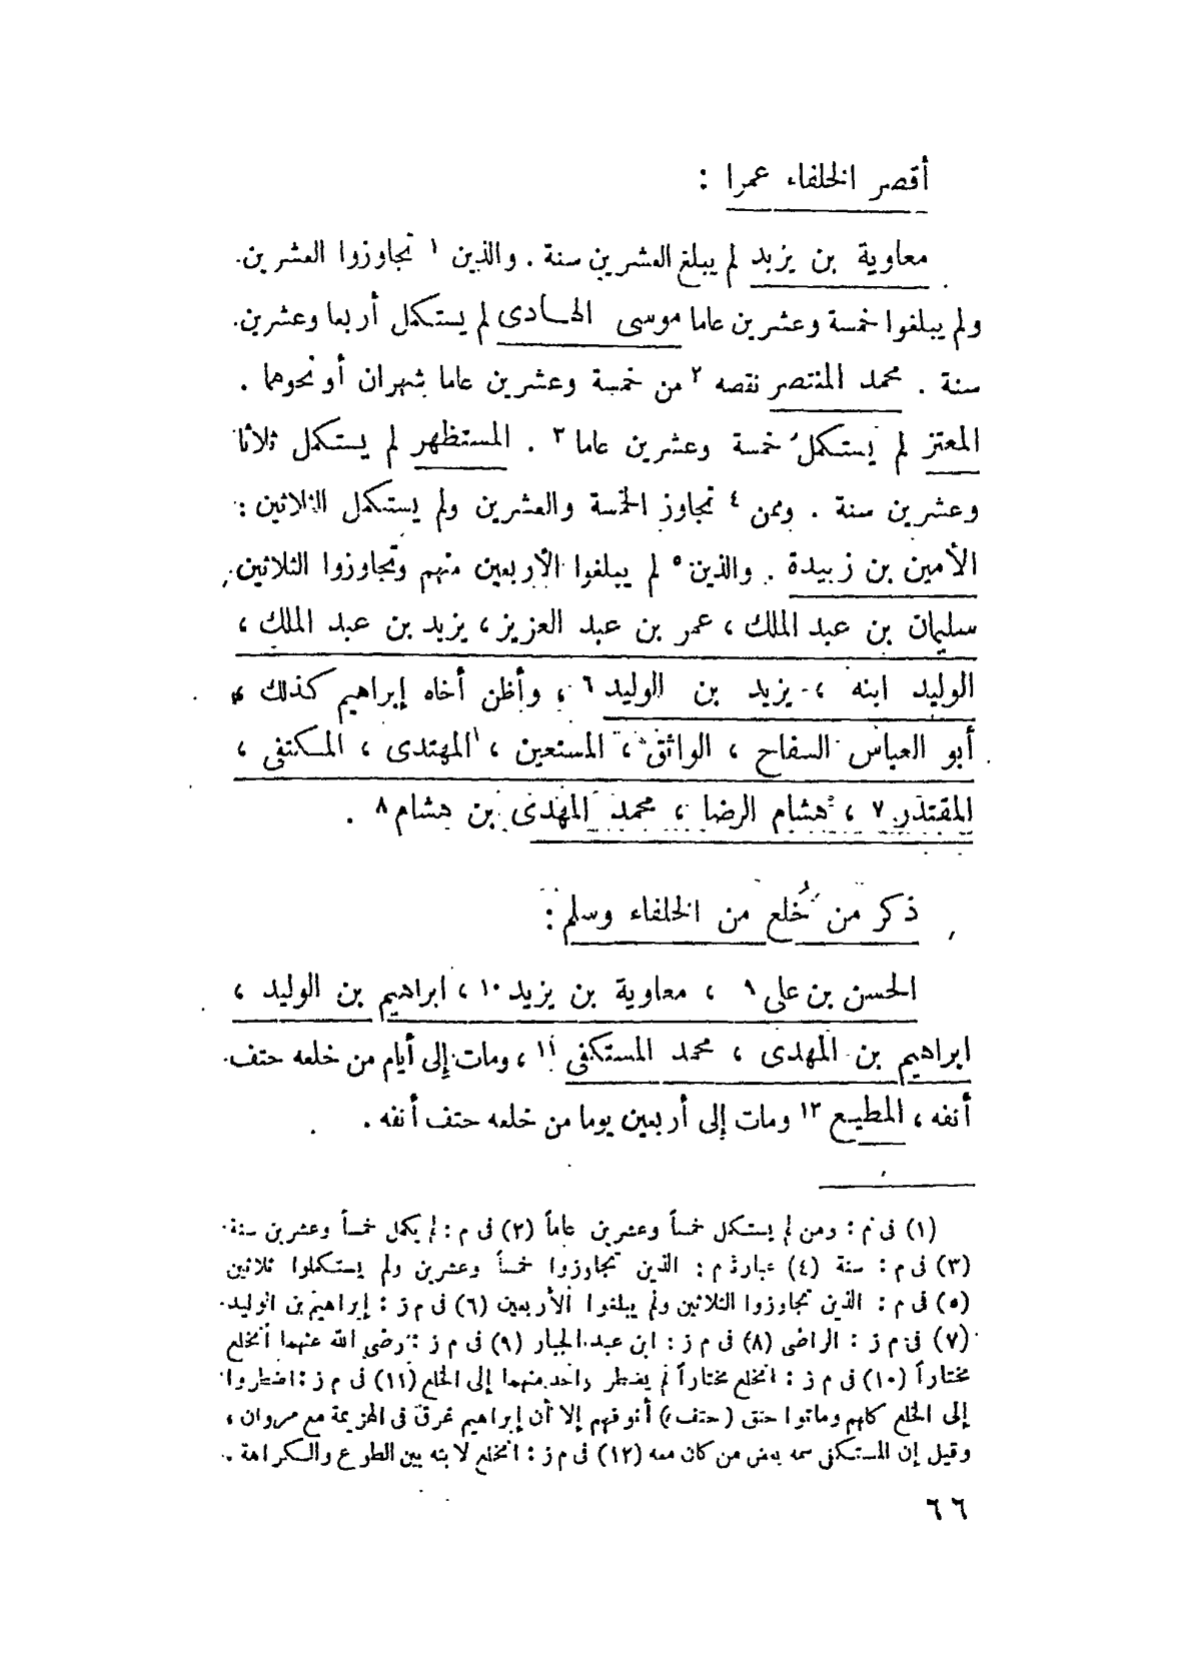 أقصر الخلفاء عمرا :
معاوية بن يزيد لم يبلغ العشرين سنة . والذين ١ تجاوزوا العشرين
ولم يبلغوا خمسة وعشرين عاما موسى الهادى لم يستكمل أربعا وعشرين
سنة . محمد المنتصر نقصه ٢ من خمسة وعشرين عاما شهران أو نحوهما .
المعتز لم يستكمل خمسة وعشرين عاما ٣ . المستظهر لم يستكمل ثلاثا
وعشرين سنة . وممن ٤ تجاوز الخمسة والعشرين ولم يستكمل الثلاثين :
الأمين بن زبيدة . والذين ٥ لم يبلغوا الأربعين منهم وتجاوزوا الثلاثين
سليمان بن عبد الملك ، عمر بن عبد العزيز ، يزيد بن عبد الملك ،
الوليد ابنه ، يزيد بن الوليد ٦ ، وأظن أخاه إبراهيم كذلك ،
أبو العباس السفاح ، الواثق ، المستعين ، المهتدى ، المكتفى ،
المقتدر ٧ ، هشام الرضا ، محمد المهدى بن هشام ٨ .
ذكر من خُلع من الخلفاء وسلم :
الحسن بن على ٩ ، معاوية بن يزيد ١٠ ، ابراهيم بن الوليد ،
ابراهيم بن المهدى ، محمد المستكفى ١١ ، ومات إلى أيام من خلعه حتف
أنفه ، المطيع ١٢ ومات إلى أربعين يوما من خلعه حتف أنفه .
(١) فى م : ومن لم يستكمل خمساً وعشرين عاماً (٢) فى م : لم يكمل خمساً وعشرين سنة
(٣) فى م : سنة (٤) عبارة م : الذين تجاوزوا خمساً وعشرين ولم يستكملوا ثلاثين
(٥) فى م : الذين تجاوزوا الثلاثين ولم يبلغوا الأربعين (٦) فى م ز : إبراهيم بن الوليد
(٧) فى م ز : الراضى (٨) فى م ز : ابن عبد الجبار (٩) فى م ز : رضى الله عنهما انخلع
مختاراً (١٠) فى م ز : انخلع مختاراً لم يضطر واحد منهما إلى الخلع (١١) فى م ز : اضطروا
إلى الخلع كلهم وماتوا حتق (حتف) أنوفهم إلا أن إبراهيم غرق فى الهزيمة مع مروان ،
وقيل إن المستكفى سمه بعض من كان معه (١٢) فى م ز : انخلع لابنه بين الطوع والكراهة .
٦٦